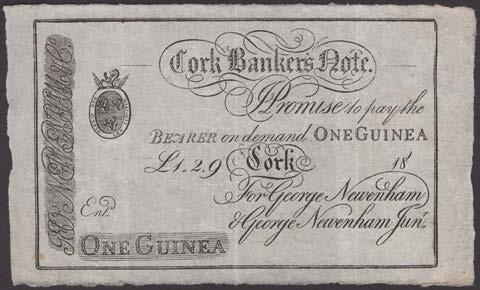 Cork Bankers Note.
I Promise to pay the
BEARER on demand ONE GUINEA
£1.2.9 Cork 18
For George Newenham
& George Newenham Junr.
Entd.
ONE GUINEA